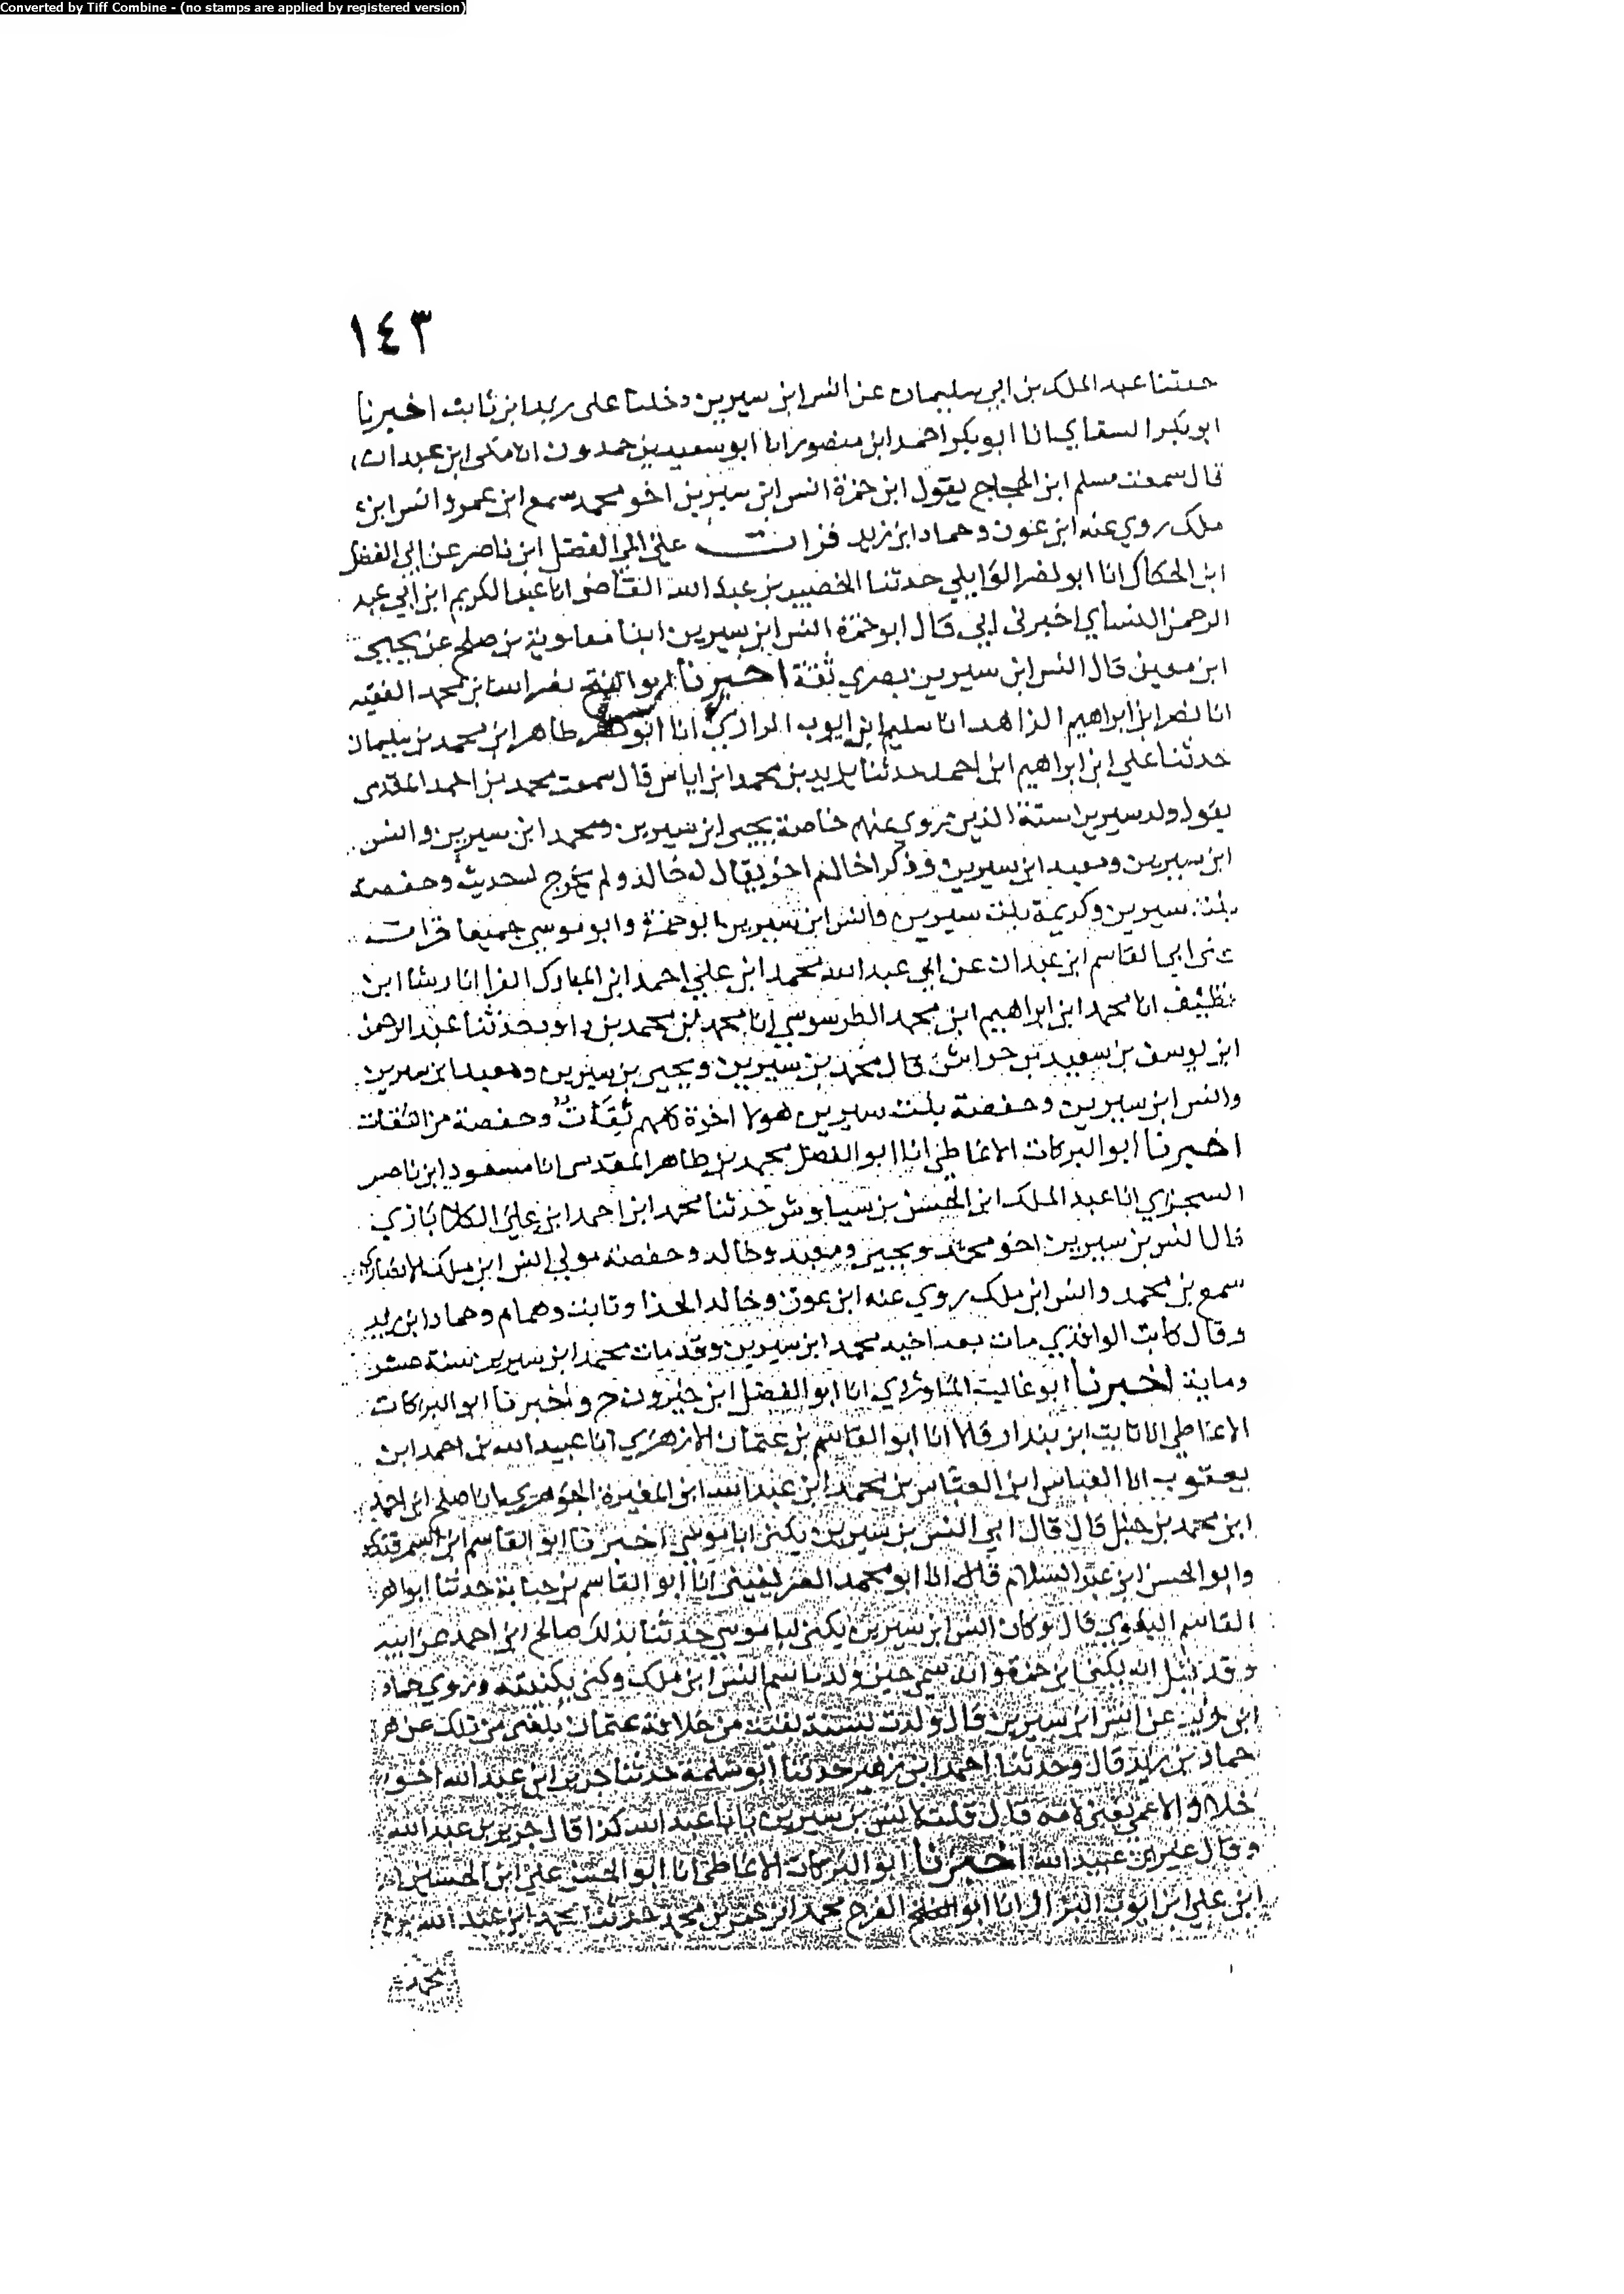 Converted by Tiff Combine - (no stamps are applied by registered version)
١٤٣
حدثنا عبد الملك بن ابي سليمان عن انس ابن سيرين دخلنا على زيد ابن ثابت اخبرنا
ابو بكر السقاي انا ابو بكر احمد ابن منصور انا ابو سعيد بن حمدون انا مكي ابن عبدان
قال سمعت مسلم ابن الحجاج يقول ابن حمزة انس ابن سيرين اخو محمد سمع ابن عمر وانس ابن
ملك روي عنه ابن عون وحماد ابن زيد قرات على ابي الفضل ابن ناصر عن ابي الفضل
ابن الحكاك انا ابو نصر الوايلي حدثنا الخصيب بن عبد الله القاضي انا عبد الكريم ابن ابي عبد
الرحمن النساي اخبرني ابي قال ابو حمزة انس ابن سيرين انبا معاوية بن صلح عن يحيى
ابن معين قال انس ابن سيرين بصري ثقة اخبرنا ابو الفتح نصر الله ابن محمد الفقيه
انا نصر ابن ابراهيم الزاهد انا سليم ابن ايوب الرازي انا ابو طاهر ابن محمد بن سليمان
حدثنا علي ابن ابراهيم ابن احمد حدثنا يزيد بن محمد ابن اياس قال سمعت محمد بن احمد المقدمى
يقول ولد سيرين ستة الذين روي عنهم خاصة يحيى ابن سيرين ومحمد ابن سيرين وانس
ابن سيرين ومعبد ابن سيرين وذكر اخا لهم اخر يقال له خالد ولم يخرج له حديث وحفصة
بنت سيرين وكريمة بنت سيرين وانس ابن سيرين ابو حمزة وابو موسى جميعا قرات
على ابي القاسم ابن عبدان عن ابي عبد الله محمد ابن علي احمد ابن المبارك الفرا انا رشا ابن
نظيف انا محمد ابن ابراهيم ابن محمد الطرسوسي انا محمد بن محمد بن داود حدثنا عبد الرحمن
ابن يوسف بن سعيد بن خراش قال محمد بن سيرين ويحيى بن سيرين ومعبد ابن سيرين
وانس ابن سيرين وحفصة بنت سيرين هولا اخوة كلهم ثقات وحفصة من الثقات
اخبرنا ابو البركات الانماطي انا ابو الفضل محمد بن طاهر المقدسي انا مسعود ابن ناصر
السجزي انا عبد الملك ابن الحسن بن سياوش حدثنا محمد ابن احمد ابن علي الكلاباذي
قال انس بن سيرين اخو محمد ويحيى ومعبد وخالد وحفصة مولى انس ابن ملك الانصاري
سمع بن محمد وانس ابن ملك روي عنه ابن عون وخالد الحذا وثابت وهمام وحماد ابن زيد
وقال كاتب الواقدي مات بعد اخيه محمد ابن سيرين وقد مات محمد ابن سيرين سنة عشر
وماية اخبرنا ابو غالب الماوردي انا ابو الفضل ابن خيرون ح واخبرنا ابو البركات
الانماطي انا ثابت ابن بندار قالا انا ابو القاسم بن عثمان الازهري انا عبيد الله بن احمد ابن
يعقوب انا العباس ابن العباس بن محمد ابن عبد الله ابن المغيرة الجوهري انا صلح ابن احمد
ابن محمد بن حنبل قال قال ابي انس بن سيرين يكنى ابا موسى اخبرنا ابو القاسم ابن السمرقندي
وابو الحسن ابن عبد السلام قالا انا ابو محمد الصريفيني انا ابو القاسم بن حبابة حدثنا ابو
القاسم البغوي قال وكان انس ابن سيرين يكنى ابا موسى حدثنا بذلك صالح ابن احمد عن ابيه
وقد قيل انه يكنى ابن حمزة وانه سمي حين ولد باسم انس ابن ملك وكني بكنيته وروي حماد
ابن زيد عن انس ابن سيرين قال ولدت لسنة بقيت من خلافة عثمان بلغني من ذلك عن
حماد بن زيد قال وحدثنا احمد ابن زهير حدثنا ابو سلمة حدثنا جرير ابن عبد الله اخو
خلاد الاعمى يعني لامه قال قلت لانس بن سيرين يا ابا عبد الله كذا قال جرير بن عبد الله
وقال غير ابن عبيد الله اخبرنا ابو البركات الانماطي انا ابو الحسن علي ابن الحسين
ابن علي ابن ايوب البزار انا ابو الفرج محمد ابن عمر بن محمد حدثنا محمد ابن عبد الله بن
محمد